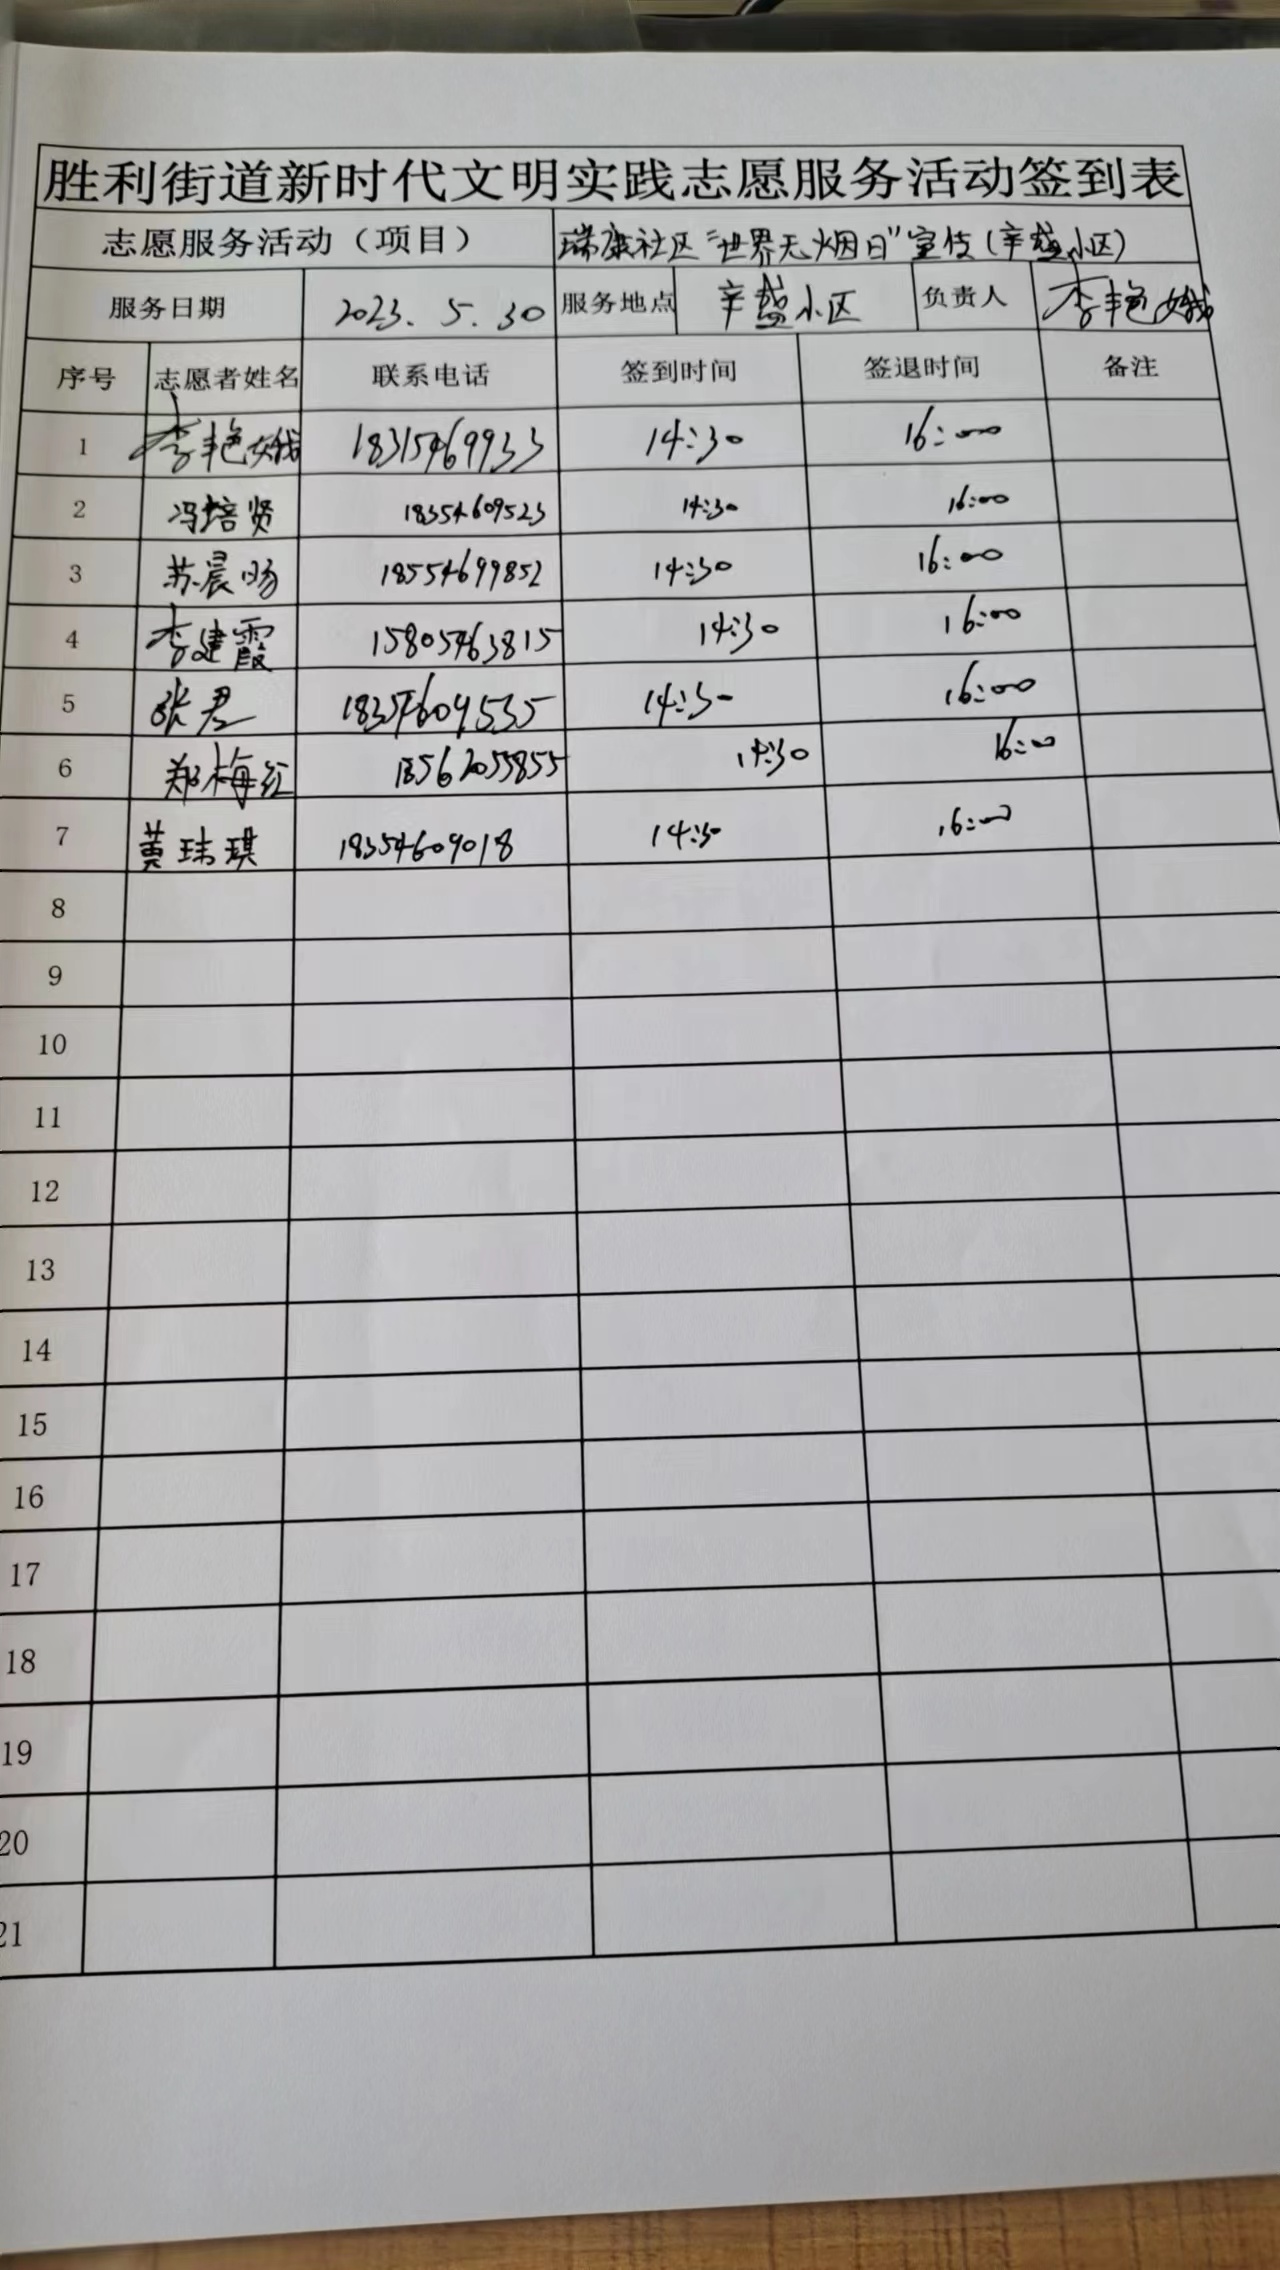 胜利街道新时代文明实践志愿服务活动签到表
志愿服务活动（项目） 瑞康社区“世界无烟日”宣传(辛盛小区)
服务日期 2023.5.30 服务地点 辛盛小区 负责人 李艳娥
序号 志愿者姓名 联系电话 签到时间 签退时间 备注
1 李艳娥 18315469933 14:30 16:00
2 冯培贤 18354609523 14:30 16:00
3 苏晨旸 18554699852 14:30 16:00
4 李建霞 15805463815 14:30 16:00
5 张君 18354609535 14:30 16:00
6 郑梅红 18562055855 14:30 16:00
7 黄玮琪 18354609018 14:30 16:00
8
9
10
11
12
13
14
15
16
17
18
19
20
21